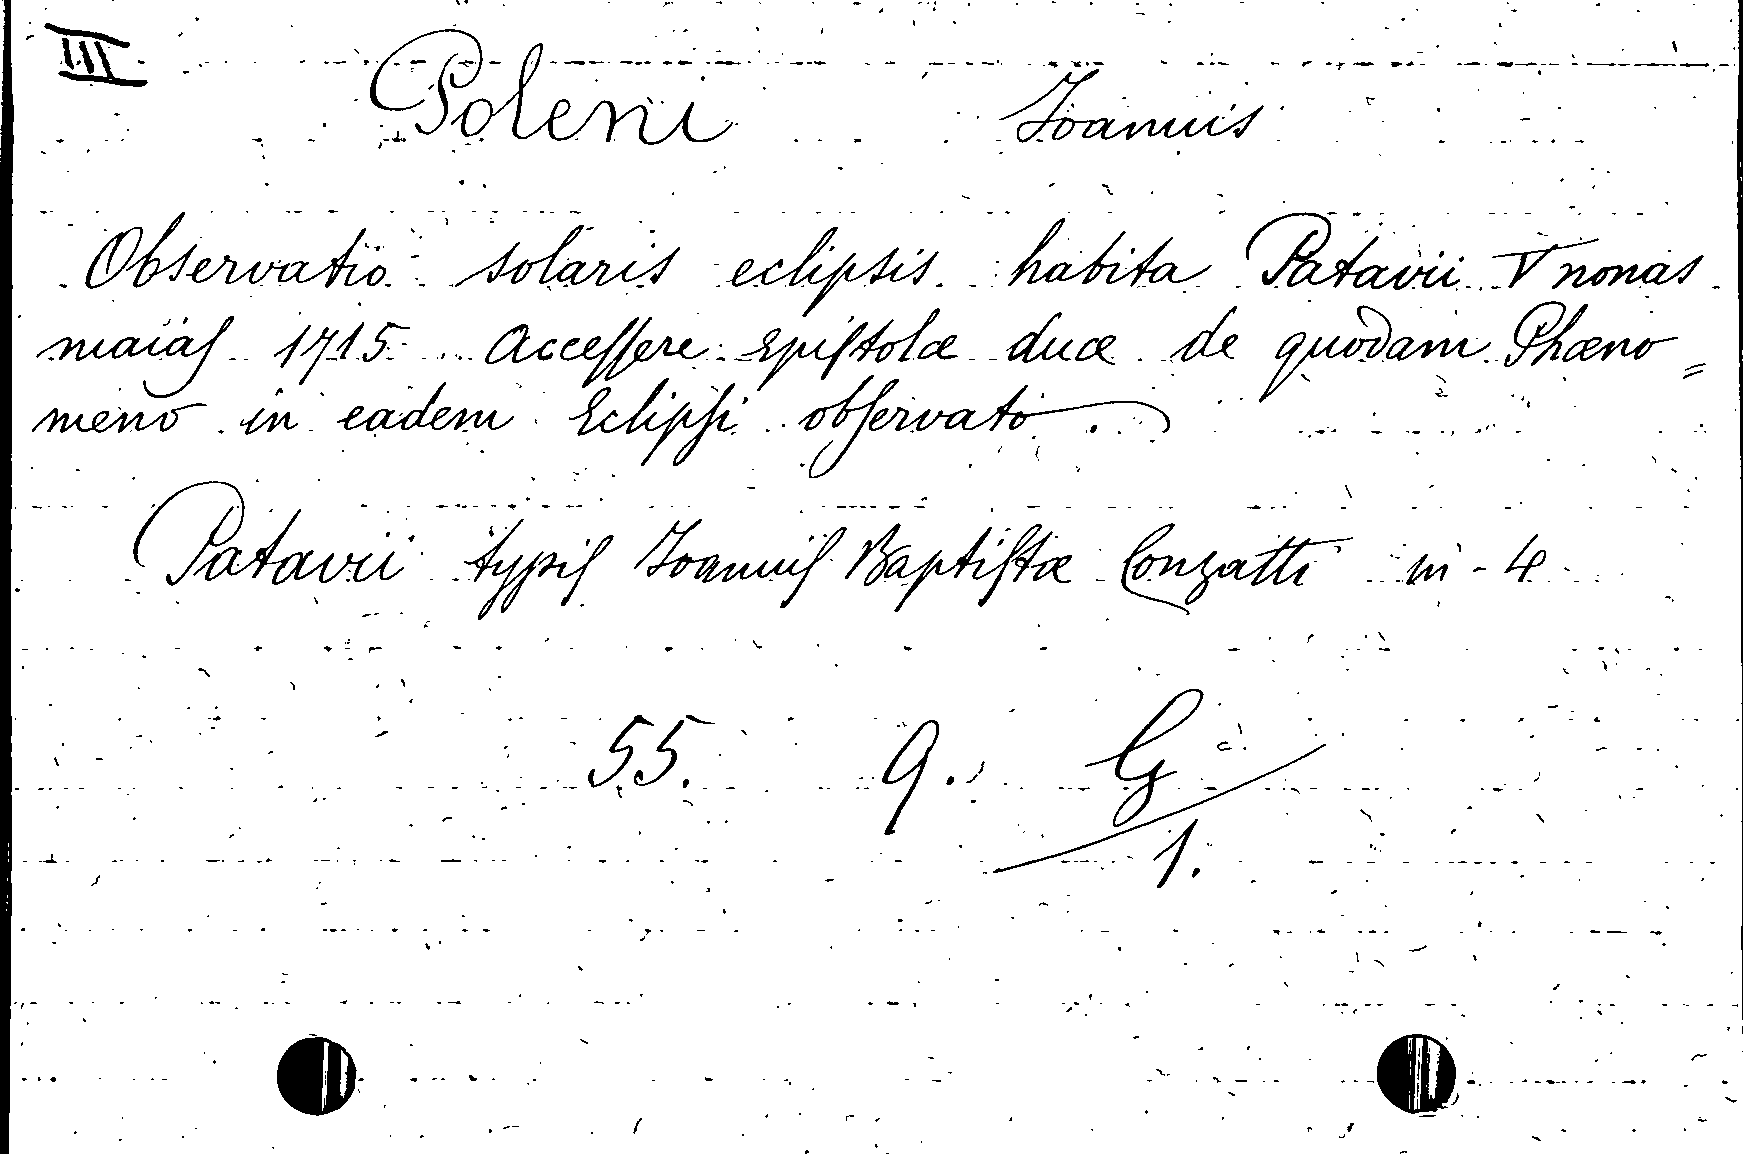 III
Poleni Ioannis
Observatio solaris eclipsis habita Patavii V nonas
maiaſ 1715. Acceſſere Epiſtolæ duæ de quodam Phæno=
meno in eadem Eclipſi obſervato.
Patavii typiſ Ioanniſ Baptiſtæ Conzatti in-4
55. 9. G
1.